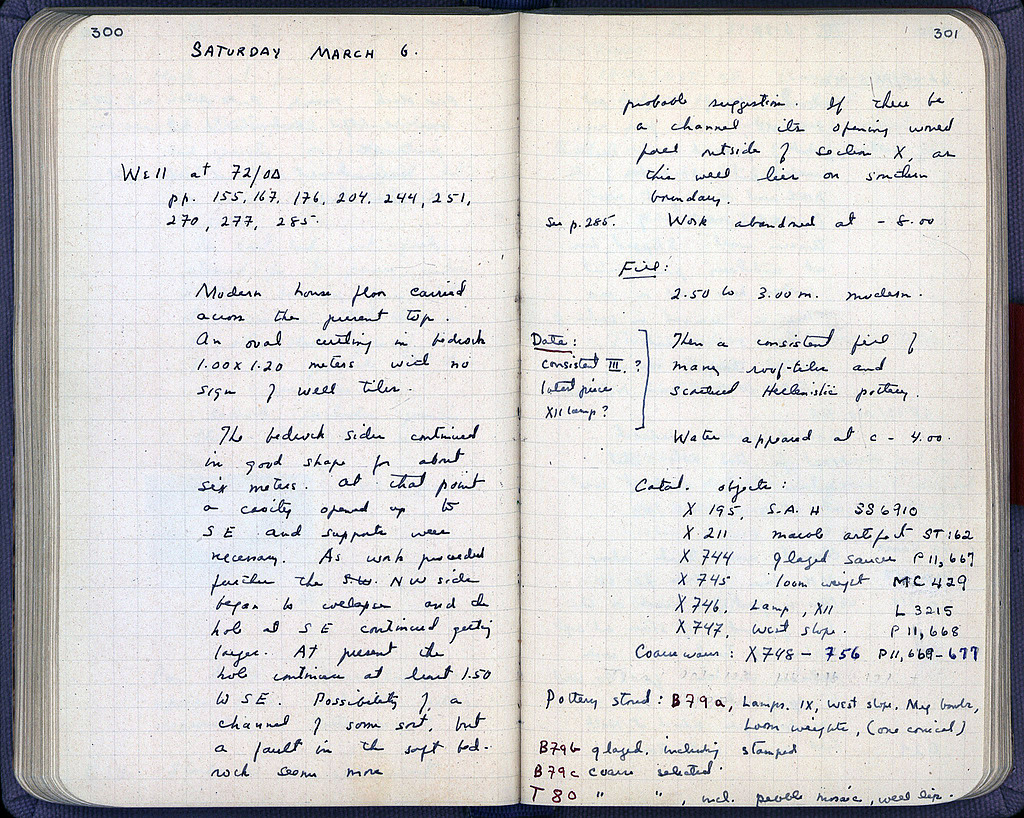 300
SATURDAY MARCH 6.
Well at 72/ΟΔ
pp. 155, 167, 176, 204, 244, 251,
270, 277, 285.
Modern house floor carried
across the present top.
An oval cutting in bedrock
1.00 x 1.20 meters with no
sign of well tiles.
The bedrock sides continued
in good shape for about
six meters. At that point
a cavity opened up to
SE and supports were
necessary. As work proceeded
further the S.W. NW side
began to collapse and the
hole at SE continued getting
larger. At present the
hole continues at least 1.50
W SE. Possibility of a
channel of some sort, but
a fault in the soft bed-
rock seems more
301
probable suggestion. If there be
a channel its opening would
fall outside of section X, as
this well lies on southern
boundary.
See p. 285. Work abandoned at - 8.00
Fill:
2.50 to 3.00 m. modern.
Date:
consistent III. ?
latest piece
XII lamp?
Then a consistent fill of
many roof-tiles and
scattered Hellenistic pottery.
Water appeared at c - 4.00.
Catal. objects:
X 195, S.A.H SS 6910
X 211 marble artifact ST 162
X 744 glazed saucer P 11,667
X 745 loom weight MC 429
X 746, Lamp, XII L 3215
X 747, West slope. P 11,668
Coarse wares: X 748 - 756 P 11,669-677
Pottery stored: B79a, Lamps. IX, West slope, Meg bowls,
Loom weights, (one conical)
B79b glazed, including stamped
B79c coarse selected.
T 80 " ", incl. pebble mosaic, well lip.